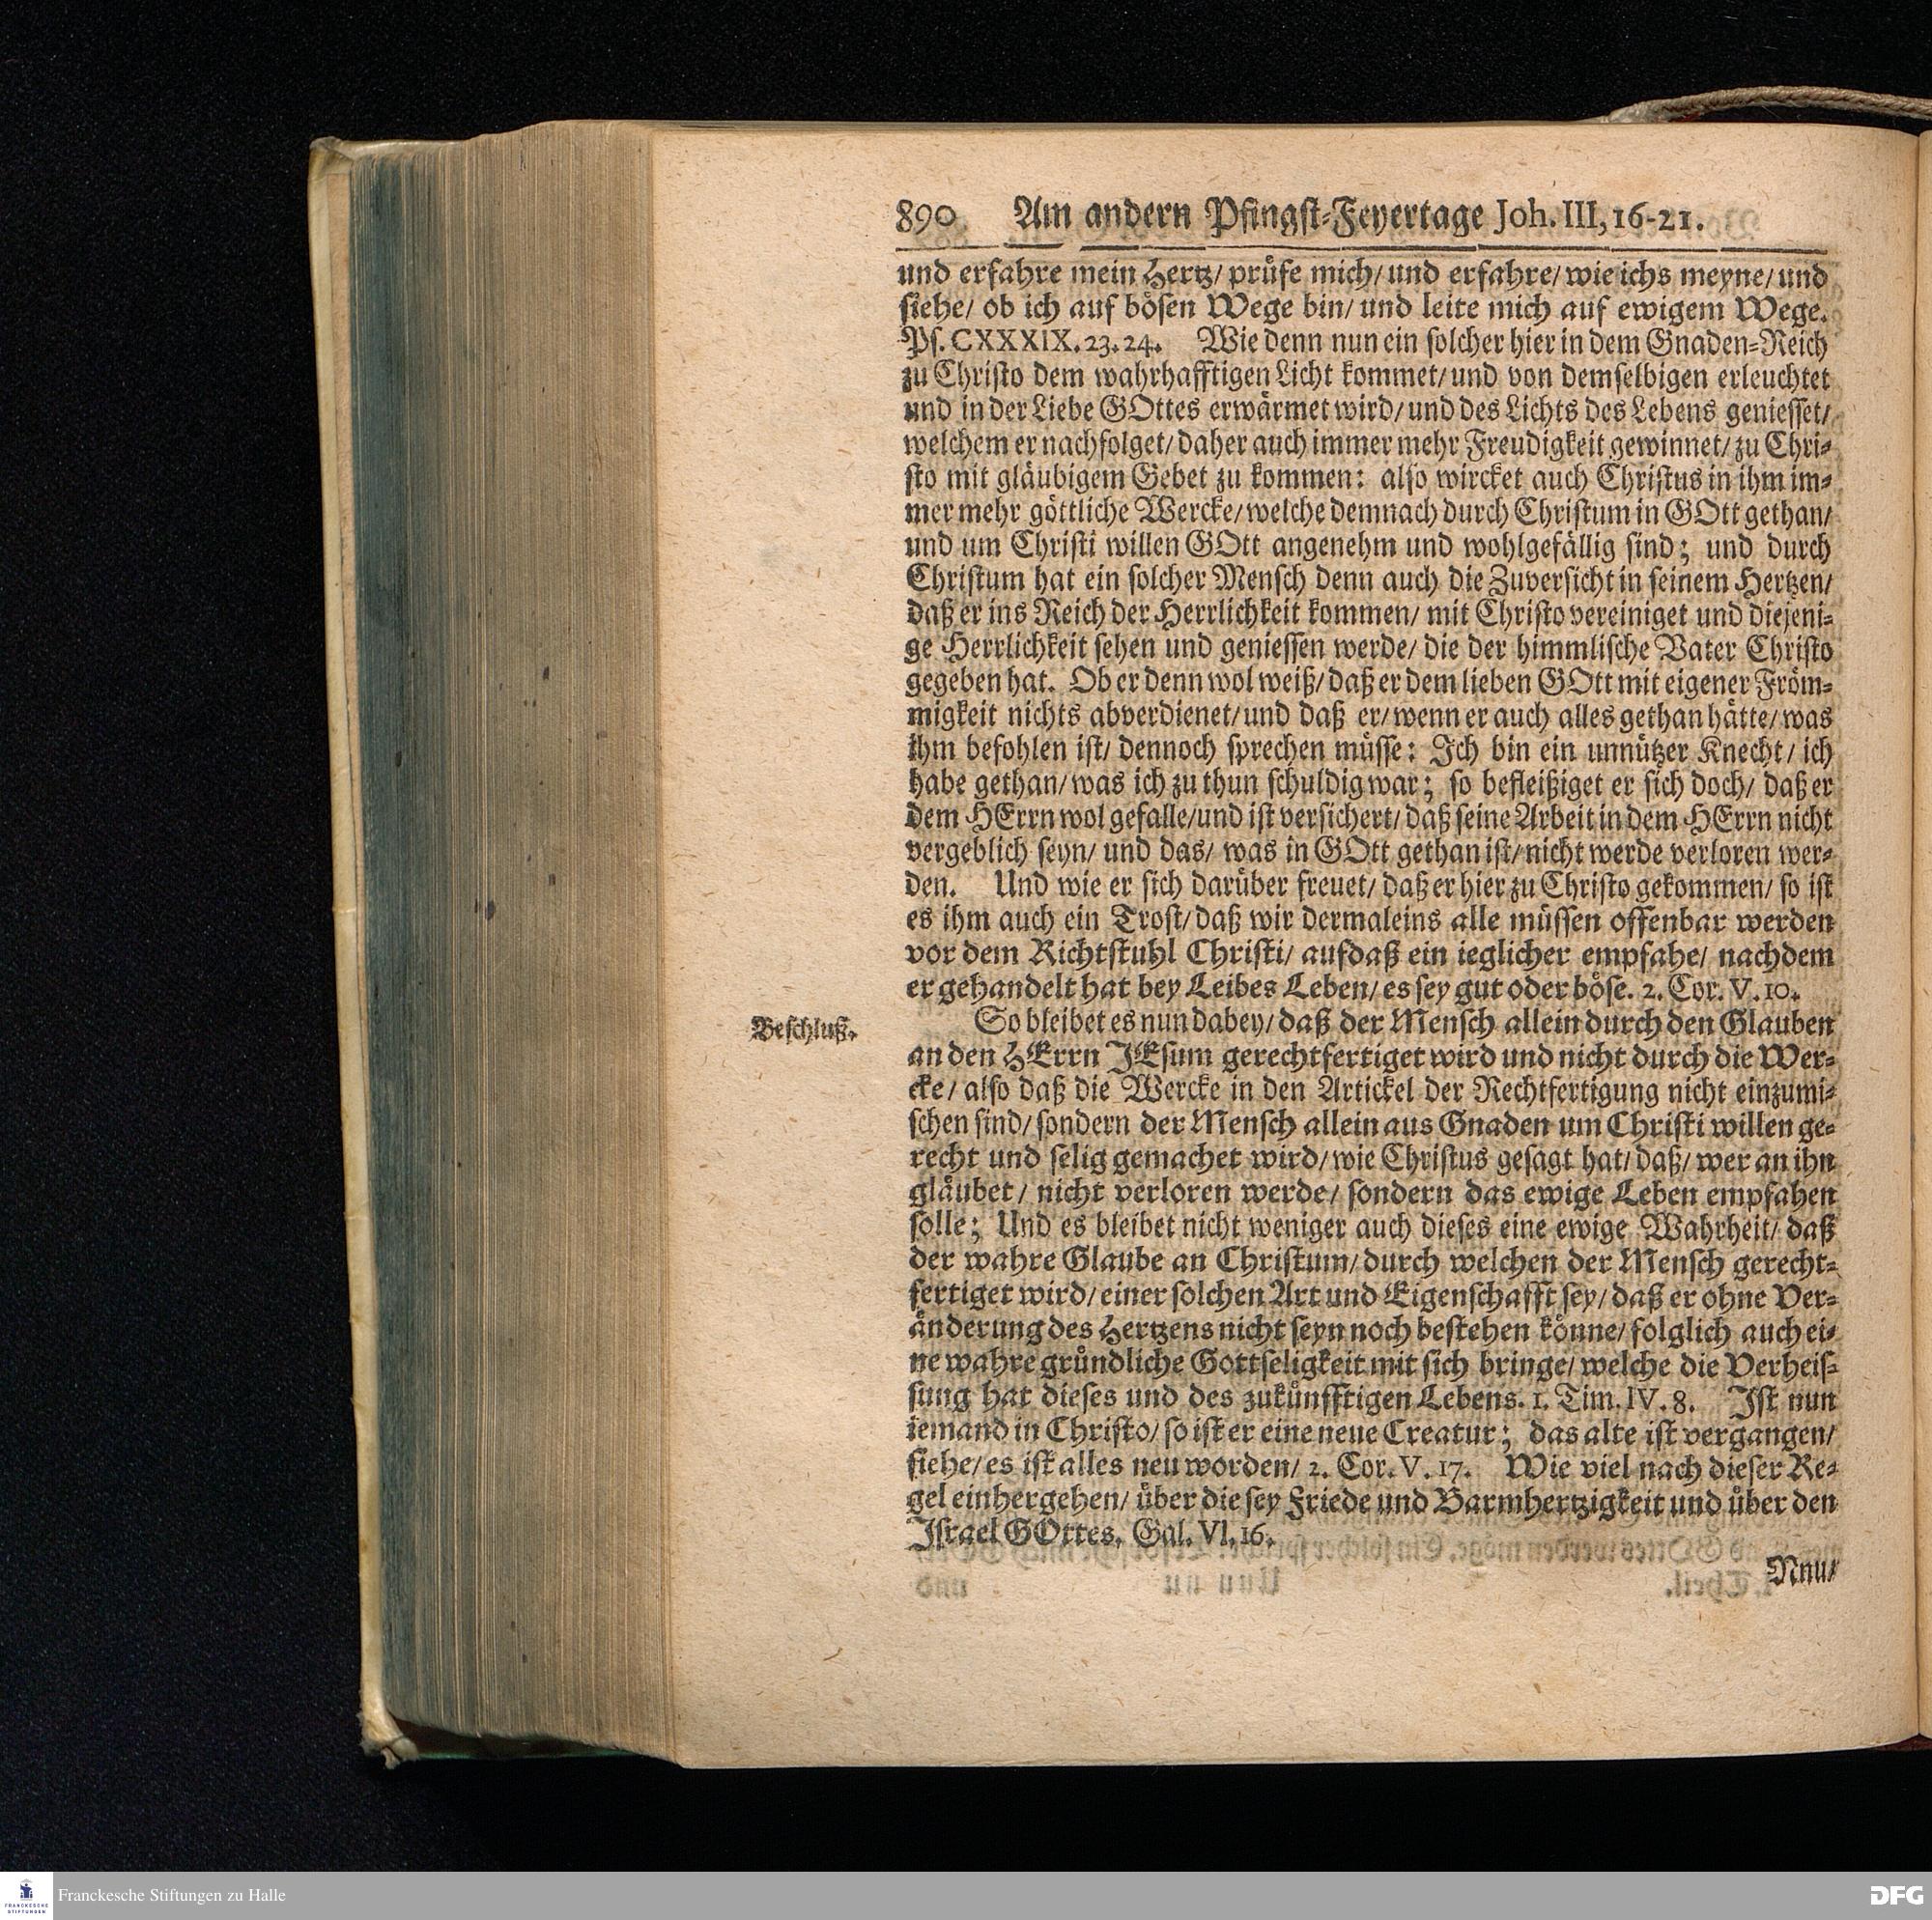 890 Am andern Pfingst-Feyertage Joh. III, 16-21.
und erfahre mein Hertz/ prüfe mich/ und erfahre/ wie ichs meyne/ und
siehe/ ob ich auf bösen Wege bin/ und leite mich auf ewigem Wege.
Ps. CXXXIX. 23. 24. Wie denn nun ein solcher hier in dem Gnaden-Reich
zu Christo dem wahrhafftigen Licht kommet/ und von demselbigen erleuchtet
und in der Liebe GOttes erwärmet wird/ und des Lichts des Lebens geniesset/
welchem er nachfolget/ daher auch immer mehr Freudigkeit gewinnet/ zu Chri-
sto mit gläubigem Gebet zu kommen: also wircket auch Christus in ihm im-
mer mehr göttliche Wercke/ welche demnach durch Christum in GOtt gethan/
und um Christi willen GOtt angenehm und wohlgefällig sind; und durch
Christum hat ein solcher Mensch denn auch die Zuversicht in seinem Hertzen/
daß er ins Reich der Herrlichkeit kommen/ mit Christo vereiniget und diejeni-
ge Herrlichkeit sehen und geniessen werde/ die der himmlische Vater Christo
gegeben hat. Ob er denn wol weiß/ daß er dem lieben GOtt mit eigener Fröm-
migkeit nichts abverdienet/ und daß er/ wenn er auch alles gethan hätte/ was
ihm befohlen ist/ dennoch sprechen müsse: Ich bin ein unnützer Knecht/ ich
habe gethan/ was ich zu thun schuldig war; so befleißiget er sich doch/ daß er
dem HErrn wol gefalle/ und ist versichert/ daß seine Arbeit in dem HErrn nicht
vergeblich seyn/ und das/ was in GOtt gethan ist/ nicht werde verloren wer-
den. Und wie er sich darüber freuet/ daß er hier zu Christo gekommen/ so ist
es ihm auch ein Trost/ daß wir dermaleins alle müssen offenbar werden
vor dem Richtstuhl Christi/ aufdaß ein ieglicher empfahe/ nachdem
er gehandelt hat bey Leibes Leben/ es sey gut oder böse. 2. Cor. V. 10.
Beschluß.
So bleibet es nun dabey/ daß der Mensch allein durch den Glauben
an den HErrn JEsum gerechtfertiget wird und nicht durch die Wer-
cke/ also daß die Wercke in den Artickel der Rechtfertigung nicht einzumi-
schen sind/ sondern der Mensch allein aus Gnaden um Christi willen ge-
recht und selig gemachet wird/ wie Christus gesagt hat/ daß/ wer an ihn
gläubet/ nicht verloren werde/ sondern das ewige Leben empfahen
solle; Und es bleibet nicht weniger auch dieses eine ewige Wahrheit/ daß
der wahre Glaube an Christum/ durch welchen der Mensch gerecht-
fertiget wird/ einer solchen Art und Eigenschafft sey/ daß er ohne Ver-
änderung des Hertzens nicht seyn noch bestehen könne/ folglich auch ei-
ne wahre gründliche Gottseligkeit mit sich bringe/ welche die Verheis-
sung hat dieses und des zukünfftigen Lebens. 1. Tim. IV. 8. Ist nun
iemand in Christo/ so ist er eine neue Creatur; das alte ist vergangen/
siehe/ es ist alles neu worden/ 2. Cor. V. 17. Wie viel nach dieser Re-
gel einhergehen/ über die sey Friede und Barmhertzigkeit und über den
Israel GOttes. Gal. VI, 16.
Nnu/
Franckesche Stiftungen zu Halle
FRANCKESCHE
STIFTUNGEN
DFG